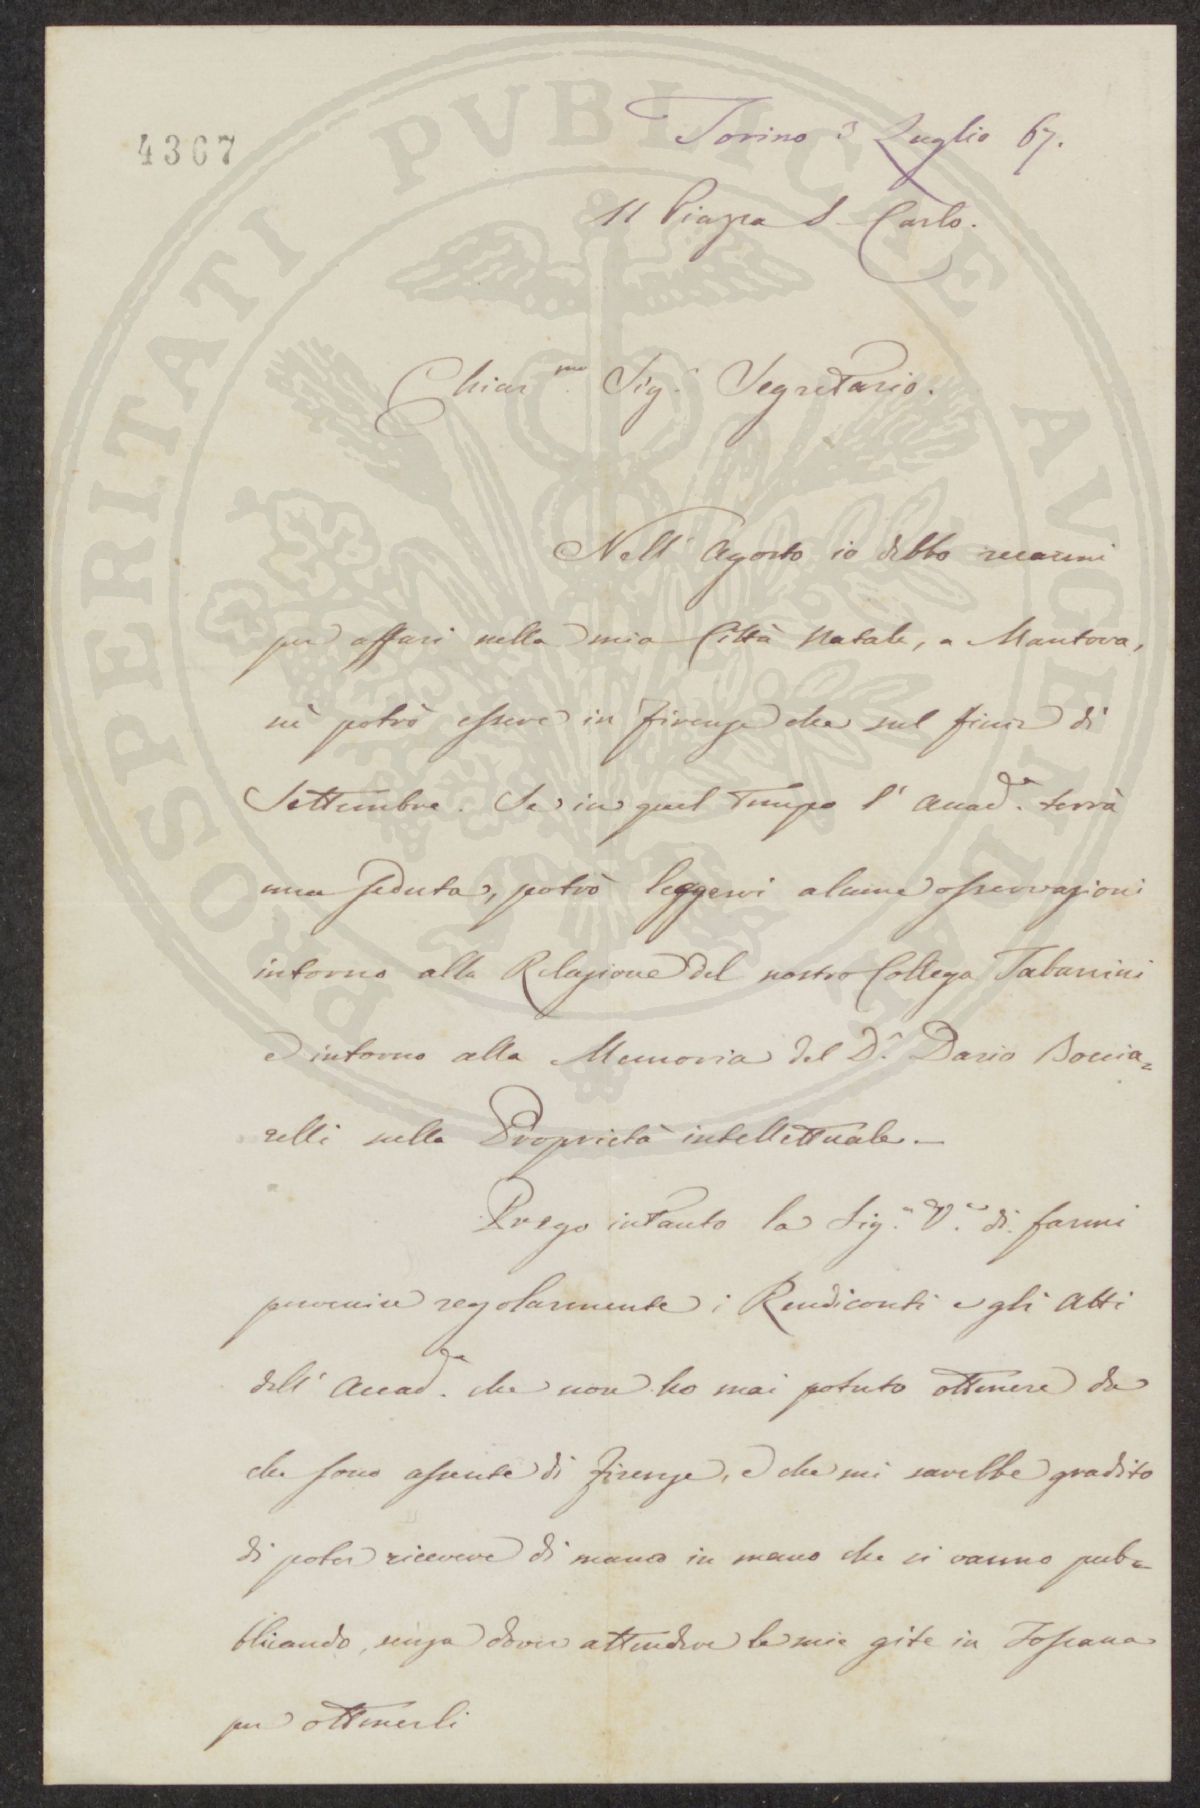 PROSPERITATI PVBLICAE AVGENDAE
4367
Torino 3 Luglio 67.
11 Piazza S. Carlo.
Chiar.mo Sig.r Segretario.
Nell' Agosto io debbo recarmi
per affari nella mia Città Natale, a Mantova,
nè potrò essere in Firenze che sul finir di
Settembre. Se in quel tempo l' Accad.a terrà
una seduta, potrò leggervi alcune osservazioni
intorno alla Relazione del nostro Collega Tabarrini
e intorno alla Memoria del D.r Dario Boccia=
relli sulla Proprietà intellettuale.—
Prego intanto la Sig.a V.a di farmi
pervenire regolarmente i Rendiconti e gli Atti
dell' Accad.a che non ho mai potuto ottenere da
che sono assente di Firenze, e che mi sarebbe gradito
di poter ricevere di mano in mano che si vanno pub=
blicando, senza dover attendere le mie gite in Toscana
per ottenerli